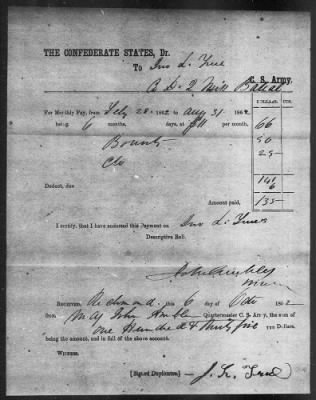 THE CONFEDERATE STATES, Dr.
To Jno L. True
Co D. 2 Miss Battal C. S. Army.
DOLLARS. CTS.
For Monthly Pay, from Feby 28 1862 to Aug 31 1862
being 6 months, days, at $11 per month. 66
Bounty 50
Clo 25
141
Deduct, due 6
Amount paid, 135
I certify, that I have endorsed this Payment on Jno L. True's
Descriptive Roll.
RECEIVED, Richmond, this 6 day of Octo 1862
from Maj John Ambler Quartermaster C. S. Army, the sum of
one Hundred & thirty five Dollars.
being the amount, and in full of the above account.
WITNESS.
(Signed Duplicates.) J. L. True